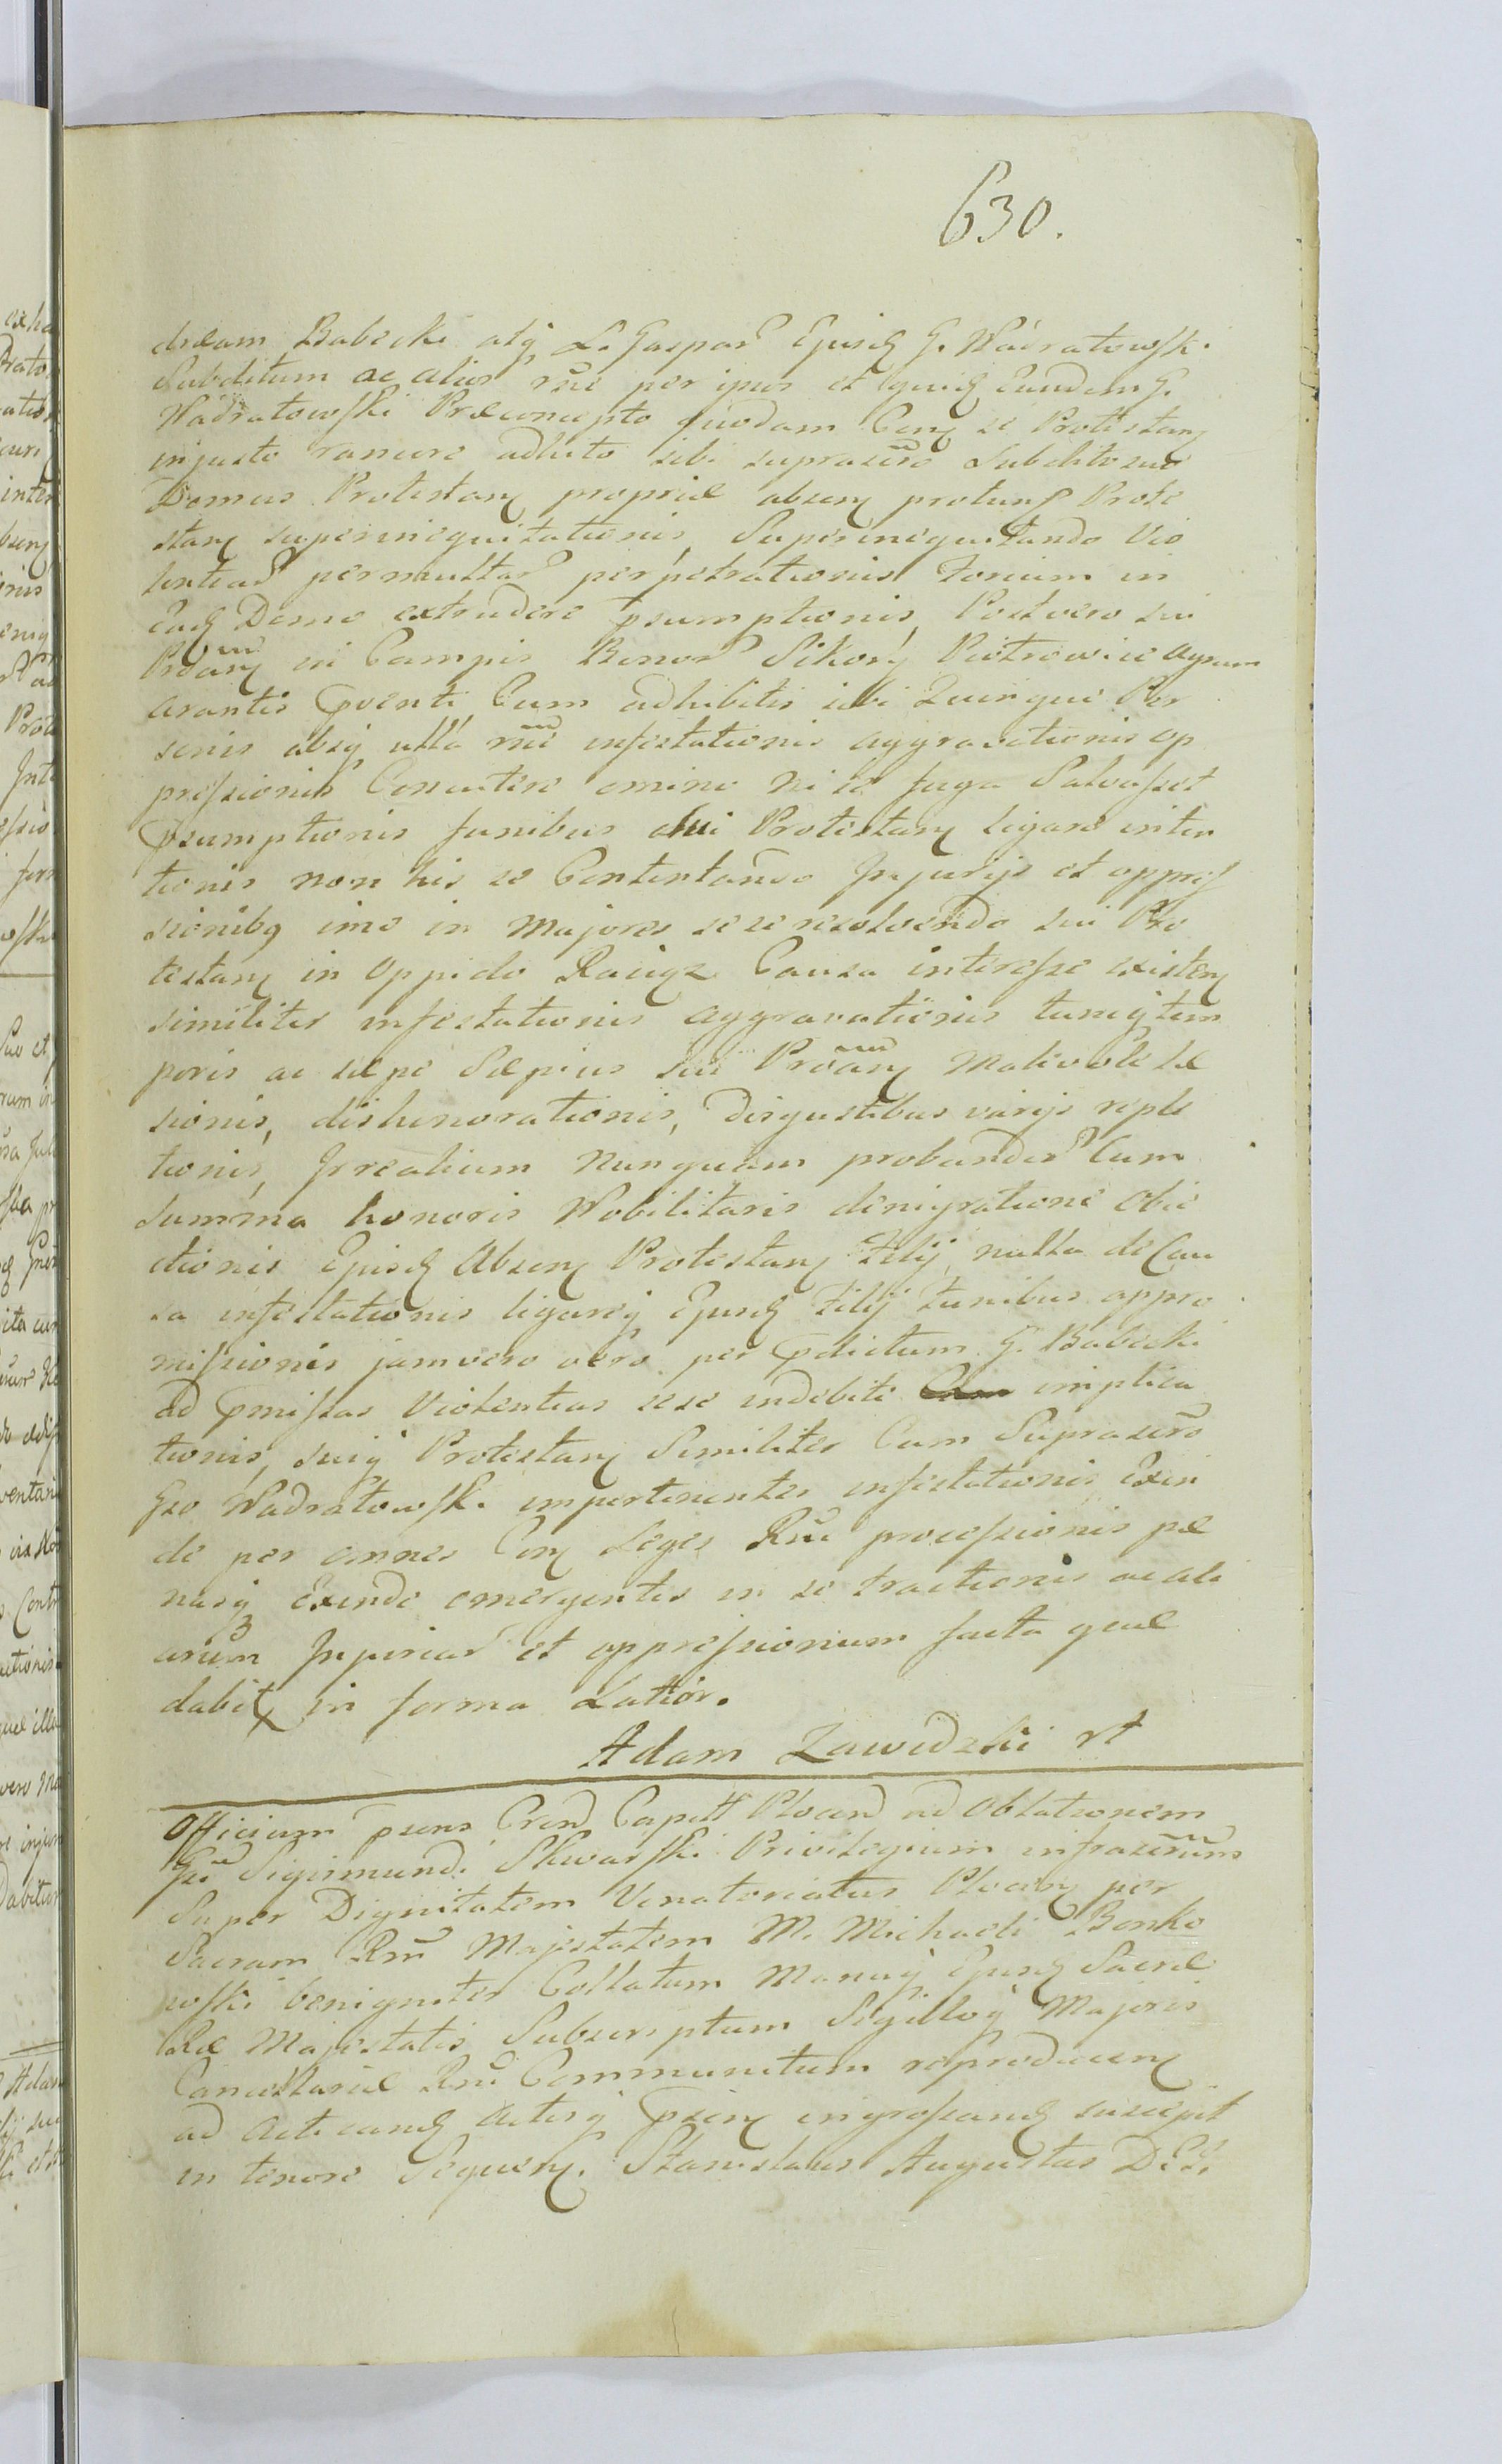 630.
dream Babecki atq L. Gaspar Ejusd G. Wądratowski
Subditum ac alios rne per ipsos et quid Eundem G.
Wądratowski Præconcepto quodam Con se Protestan
injusto rancore adhito sibi suprascro Subdito suo
Domus Protestan propriæ absen protunc Prote
stan superinequitationis, Superinequitando Vio
lentias permultas perpetrationis Forium in
Ead Domo extrudere psumptionis, Post vero sui
Protan in Campis Bonor Sikory Piotrowice agrum
arantis pventi Cum adhibitis sibi Quinque Per
sonis absq ulla rne infestationis aggravationis op
pressionis Concutere omino ni se fuga Salvasset
psumptionis funibus sui Protestan ligare inten
tionis non his se Contentando Injurijs et oppres
sionibq imo in Majores sese resolvendo sui Pro
testan in Oppido Raciąz Causa interesse existen
similiter infestationis aggravationis tunqtem
poris ac sæpe Sæpius sui Protan Malivole læ
sionis, dishonorationis, Disgustibus varijs reple
tionis, Irrealium Nunquam probandor Cum
summa honoris Nobilitaris denigratione Obie
ctionis Ejusd Absen Protestan Filij, nulla de Cau
sa infestationis ligareq Ejusd Filij funibus appro
missionis jamvero vero per pdictum G. Babecki
ad pmissas Violentias sese indebite implica
tionis, suiq Protestan Similiter Cum Suprascro
Gso Wadratowski impertinenter infestationis Exin
de per omnes Con Leges Rni processionis pæ
nasq Exinde emergentes in se tractionis ac ali
arum Injuriar et oppressionum facta quæ
dabit in forma Latior.
Adam Zawidzki rt
Officium psens Cren Capitl Plocen ad Oblationem
Gsi Sigismundi Skwarski Privilegium infrascrum
Super Dignitatem Venatoriatus Plocen per
Sacram Rm Majestatem M. Michaeli Bonko
wski benigniter Collatum Manuq Ejusd Sacræ
Ræ Majestatis Subscriptum Sigilloq Majoris
Cancellariæ Rni Communitum reproducen
ad Acticand Actisq psen ingrossand suscepit
in tenore Sequen. Stanislaus Augustus D. G.